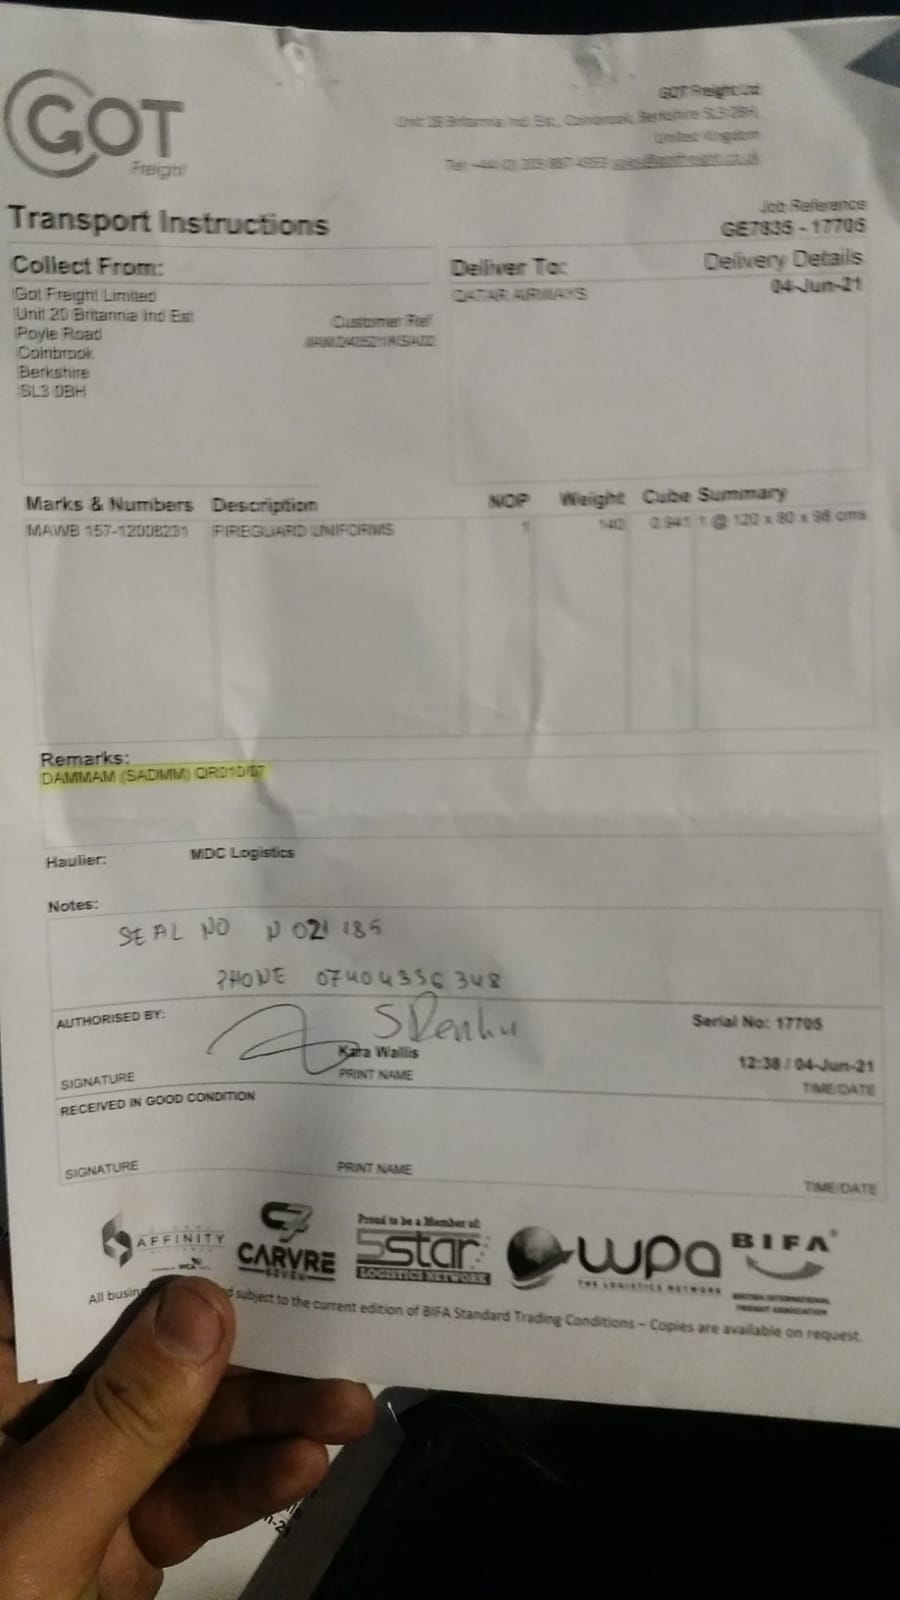 GOT
Freight
GOT Freight Ltd
Britannia Ind Est., Colnbrook, Berkshire SL3 0BH,
United Kingdom
sales@gotfreight.co.uk
Transport Instructions
Job Reference
GE7835 - 17705
Collect From:
Got Freight Limited
Unit 20 Britannia Ind Est
Poyle Road
Colnbrook
Berkshire
SL3 0BH
Customer Ref
Deliver To:
QATAR AIRWAYS
Delivery Details
04-Jun-21
Marks & Numbers Description NOP Weight Cube Summary
MAWB 157-12008231 FIREGUARD UNIFORMS 1 140 0.941 1 @ 120 x 80 x 98 cms
Remarks:
DAMMAM (SADMM) QR010/07
Haulier: MDC Logistics
Notes:
SEAL NO N 021 185
PHONE 07404356348
AUTHORISED BY:
Kara Wallis
Serial No: 17705
12:38 / 04-Jun-21
SIGNATURE PRINT NAME TIME/DATE
RECEIVED IN GOOD CONDITION
SIGNATURE PRINT NAME TIME/DATE
AFFINITY
CARVRE
SEVEN
Proud to be a Member of:
5star
LOGISTICS NETWORK
wpa
THE LOGISTICS NETWORK
BIFA
BRITISH INTERNATIONAL
FREIGHT ASSOCIATION
All subject to the current edition of BIFA Standard Trading Conditions – Copies are available on request.